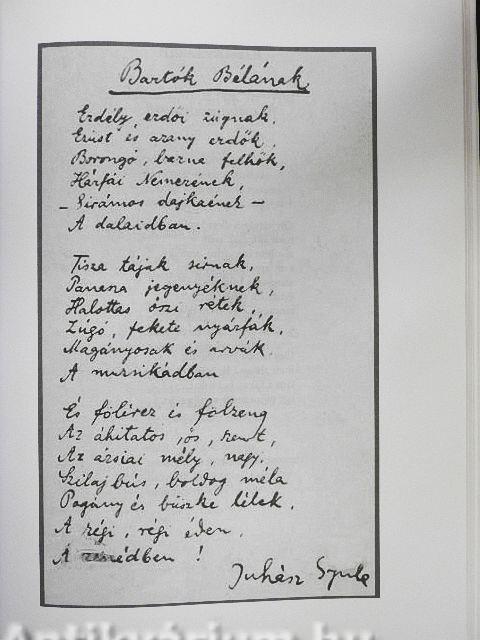 Bartók Bélának
Erdély erdői zúgnak,
Ezüst és arany erdők,
Borongó, barna felhők,
Hárfái Nemerének,
– Siralmos dajkaének –
A dalaidban.
Tisza tájak sirnak,
Panasza jegenyéknek,
Halottas őszi rétek,
Zúgó, fekete nyárfák,
Magányosak és árvák
A muzsikádban
És fölérez és fölzeng
Az áhitatos, ős, szent,
Az ázsiai mély, nagy,
Szilaj bús, boldog méla
Pogány és büszke lélek,
A régi, régi éden,
A zenédben!
Juhász Gyula
Antikvárium.hu